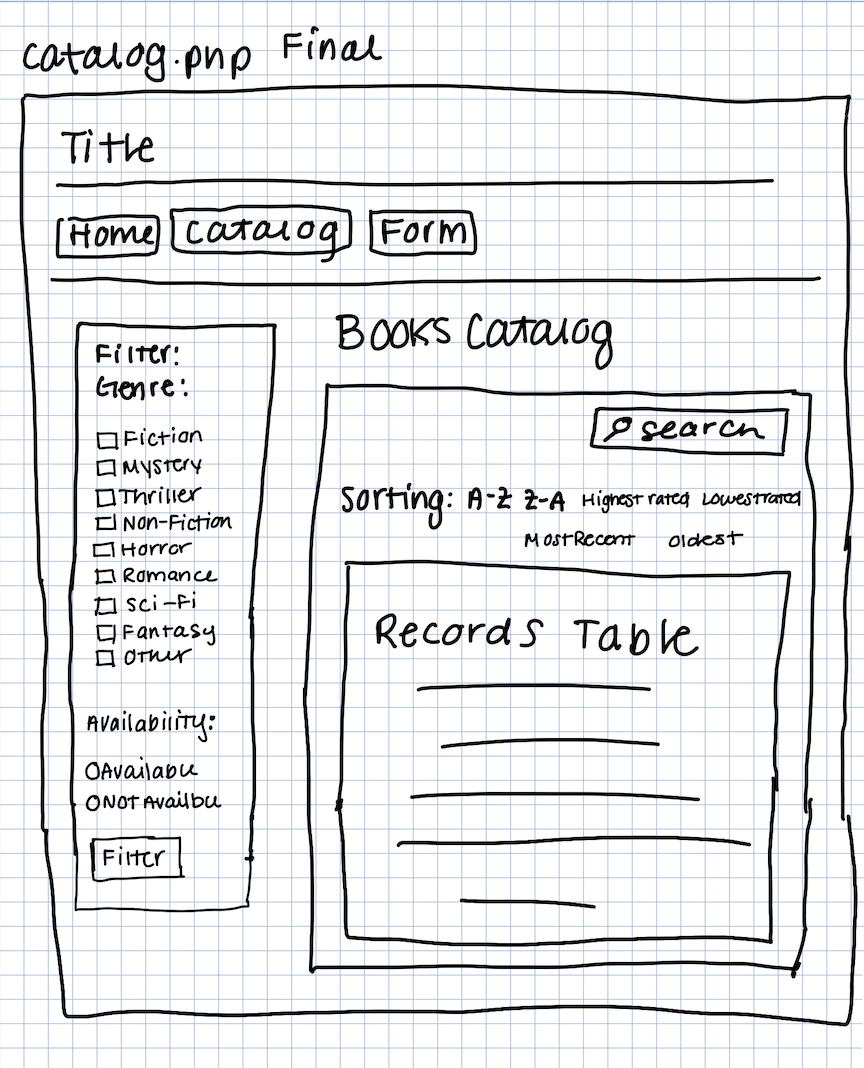 catalog.php Final
Title
Home Catalog Form
Filter:
Genre:
Fiction
Mystery
Thriller
Non-Fiction
Horror
Romance
Sci-Fi
Fantasy
Other
Availability:
Available
Not Availble
Filter
Books Catalog
search
Sorting: A-Z Z-A Highest rated Lowest rated
Most Recent Oldest
Records Table